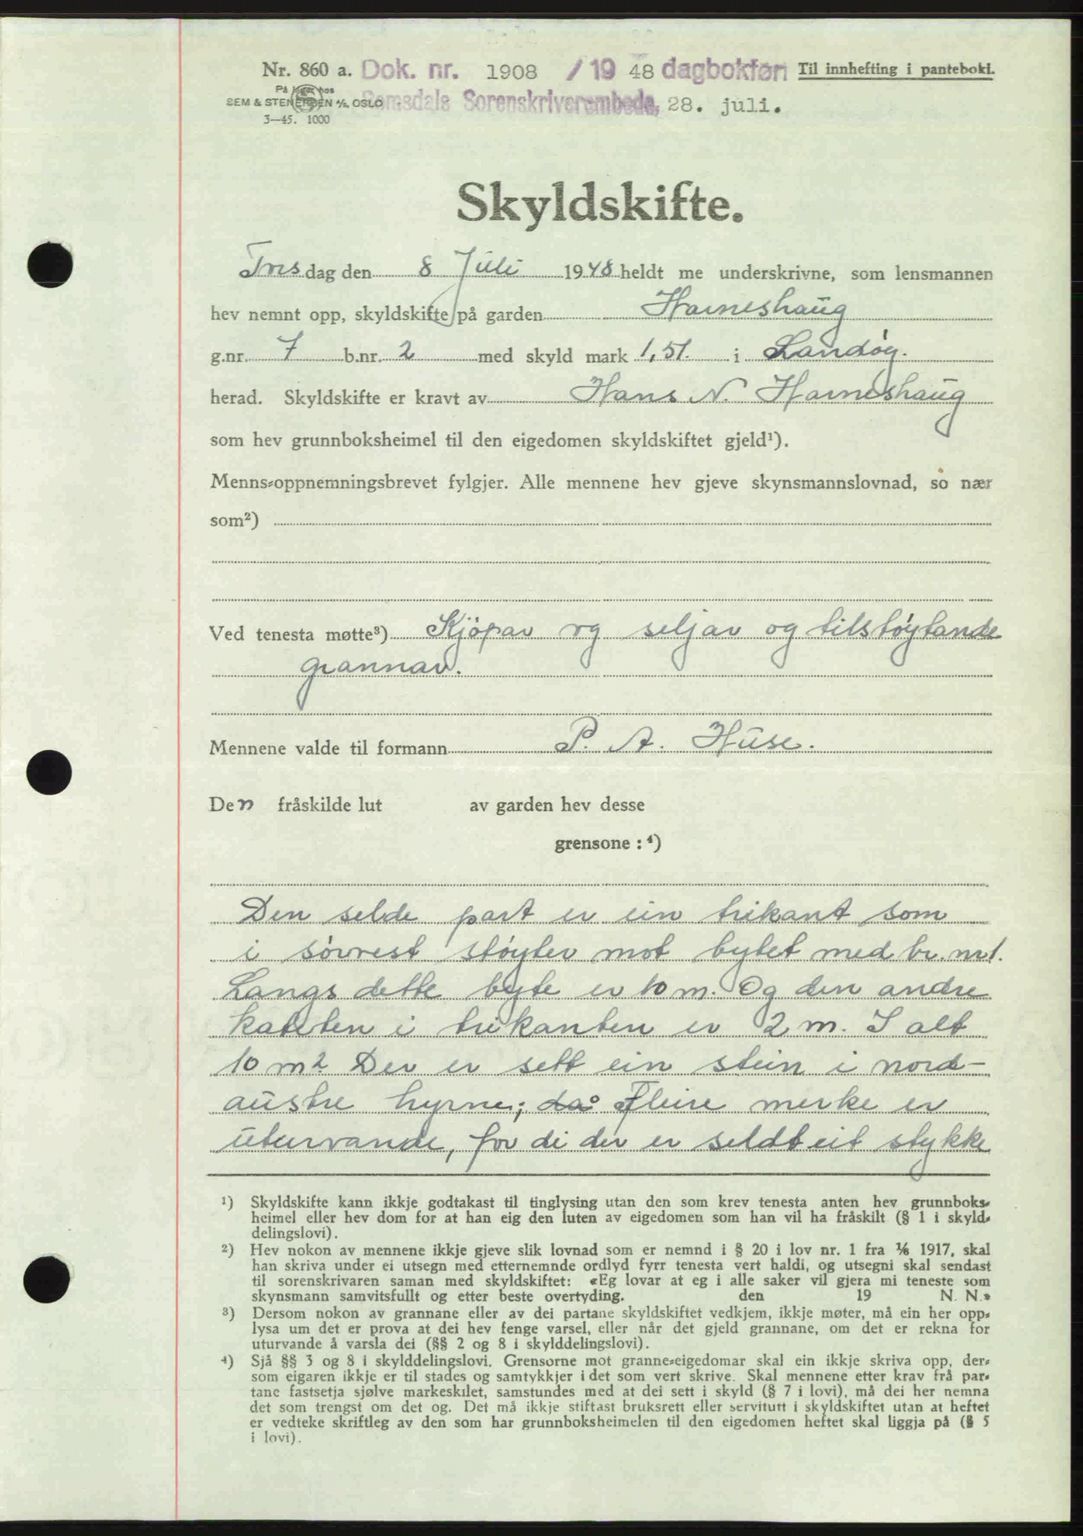 Nr. 860 a. Dok. nr. 1908 / 19 48 dagbokført Til innhefting i panteboki.
På lager hos
SEM & STENERSEN A/S, OSLO Romsdals Sorenskriverembede, 28. juli.
3—45. 1000
Skyldskifte.
dag den 8 Juli 1948 heldt me underskrivne, som lensmannen
hev nemnt opp, skyldskifte på garden Harneshaug
g.nr. 7 b.nr. 2 med skyld mark 1,51. i Sandøy.
herad. Skyldskifte er kravt av Hans N. Harneshaug
som hev grunnboksheimel til den eigedomen skyldskiftet gjeld¹).
Menns-oppnemningsbrevet fylgjer. Alle mennene hev gjeve skynsmannslovnad, so nær
som²)
Ved tenesta møtte³) Kjöpar og seljar og tilstøytande
grannar.
Mennene valde til formann P. A. Huse.
Den fråskilde lut av garden hev desse
grensone : ⁴)
Den selde part er ein trikant som
i sørvest støyter mot bytet med br. nr 1.
Langs dette byte er 10 m. Og den andre
kateten i trikanten er 2 m. I alt
10 m2 Der er sett ein stein i nord-
austre hyrne; då Fleire merke er
uturvande, for di der er seldt eit stykke
¹) Skyldskifte kann ikkje godtakast til tinglysing utan den som krev tenesta anten hev grunnboks-
heimel eller hev dom for at han eig den luten av eigedomen som han vil ha fråskilt (§ 1 i skyld-
delingslovi).
²) Hev nokon av mennene ikkje gjeve slik lovnad som er nemnd i § 20 i lov nr. 1 fra 1/6 1917, skal
han skriva under ei utsegn med etternemnde ordlyd fyrr tenesta vert haldi, og utsegni skal sendast
til sorenskrivaren saman med skyldskiftet: «Eg lovar at eg i alle saker vil gjera mi teneste som
skynsmann samvitsfullt og etter beste overtyding. den 19 N. N.»
³) Dersom nokon av grannane eller av dei partane skyldskiftet vedkjem, ikkje møter, må ein her opp-
lysa um det er prova at dei hev fenge varsel, eller når det gjeld grannane, om det er rekna for
uturvande å varsla dei (§§ 2 og 8 i skylddelingslovi).
⁴) Sjå §§ 3 og 8 i skylddelingslovi. Grensorne mot granne-eigedomar skal ein ikkje skriva opp, der-
som eigaren ikkje er til stades og samtykkjer i det som vert skrive. Skal mennene etter krav frå par-
tane fastsetja sjølve markeskilet, samstundes med at dei sett i skyld (§ 7 i lovi), må dei her nemna
det som trengst om det og. Det må ikkje stiftast bruksrett eller servitutt i skyldskiftet utan at heftet
er vedteke skriftleg av den som har grunnboksheimelen til den eigedomen heftet skal liggja på (§ 5
i lovi).